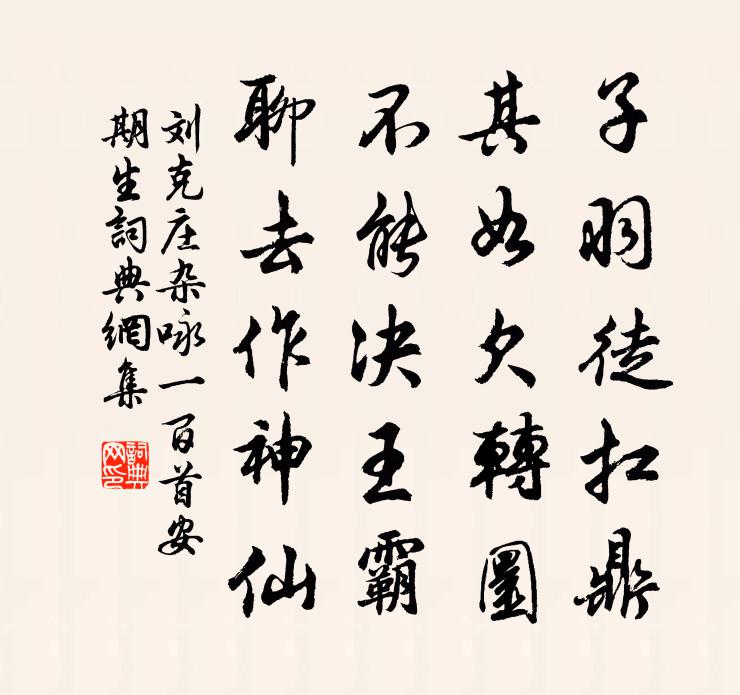 子羽徒扛鼎
其如欠轉圜
不能决王霸
聊去作神仙
刘克庄杂咏一百首安
期生詞典網集
詞典
网印